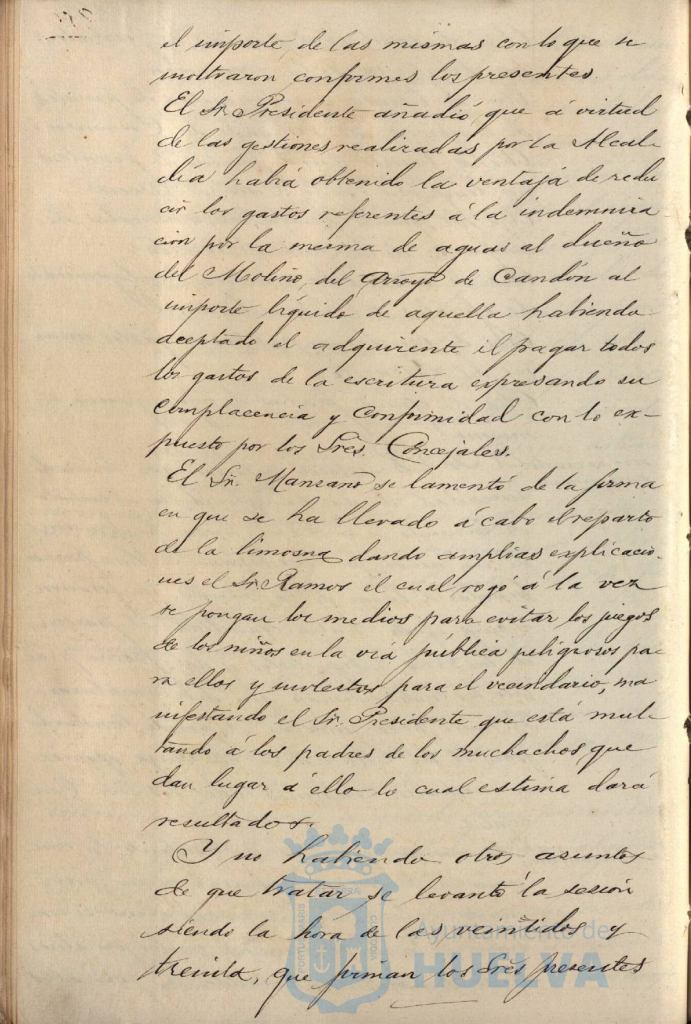 el importe de las mismas con lo que se
mostraron conformes los presentes.
El Sr. Presidente añadió, que á virtud
de las gestiones realizadas por la Alcal-
día habia obtenido la ventaja de redu
cir los gastos referentes á la indemniza
cion por la merma de aguas al dueño
del Molino del Arroyo de Candón al
importe líquido de aquella habiendo
aceptado el adquirente el pagar todos
los gastos de la escritura expresando su
complacencia y conformidad con lo ex-
puesto por los Sres. Concejales.
El Sr. Manzano se lamentó de la forma
en que se ha llevado á cabo el reparto
de la limosna dando amplias explicacio-
nes el Sr. Ramos el cual rogó á la vez
se pongan los medios para evitar los juegos
de los niños en la via pública peligrosos pa-
ra ellos y molestos para el vecindario, ma
nifestando el Sr. Presidente que está mul-
tando á los padres de los muchachos que
dan lugar á ello lo cual estima dará
resultados.
Y no habiendo otros asuntos
de que tratar se levantó la sesión
siendo la hora de las veintidos y
treinta, que firman los Sres presentes
Ayuntamiento de
HUELVA